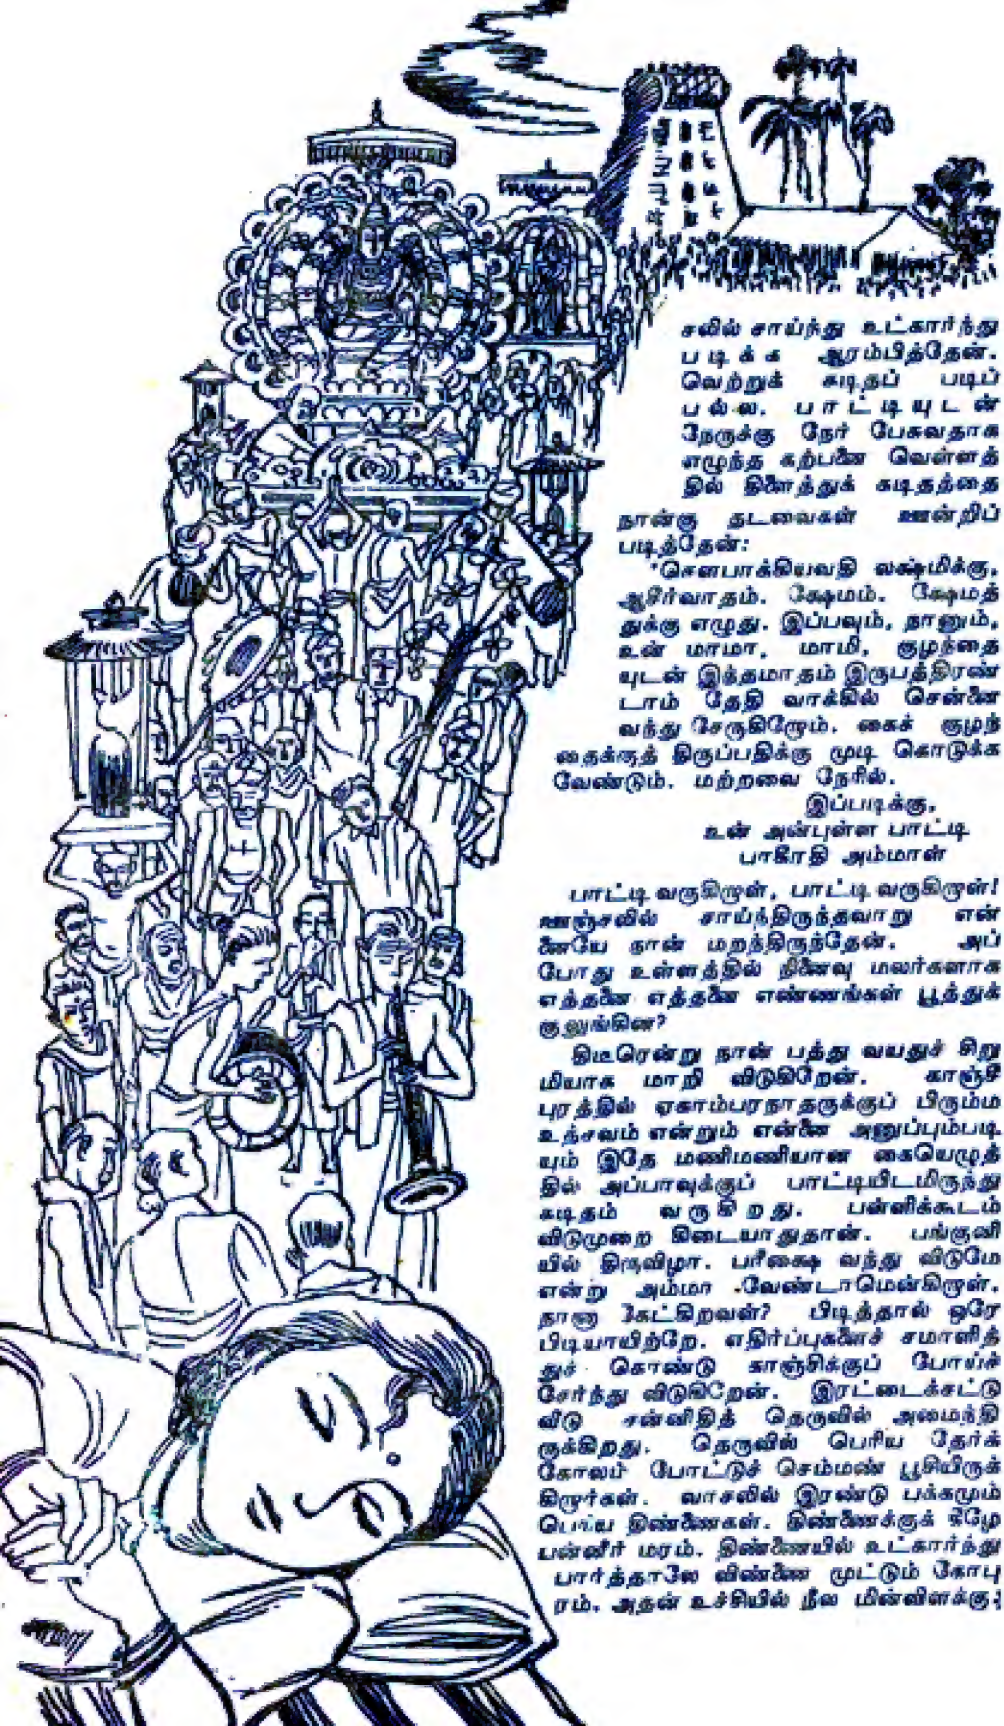 சலில் சாய்ந்து உட்கார்ந்து
படிக்க ஆரம்பித்தேன்.
வெற்றுக் கடிதப் படிப்
பல்ல. பாட்டியுடன்
நேருக்கு நேர் பேசுவதாக
எழுந்த கற்பனை வெள்ளத்
தில் திளைத்துக் கடிதத்தை
நான்கு தடவைகள் ஊன்றிப்
படித்தேன்:
"சௌபாக்கியவதி லக்ஷ்மிக்கு,
ஆசிர்வாதம். க்ஷேமம். க்ஷேமத்
துக்கு எழுது. இப்பவும், நானும்,
உன் மாமா, மாமி, குழந்தை
யுடன் இந்தமாதம் இருபத்திரண்
டாம் தேதி வாக்கில் சென்னை
வந்து சேருகிறோம். கைக் குழந்
தைக்குத் திருப்பதிக்கு முடி கொடுக்க
வேண்டும். மற்றவை நேரில்.
இப்படிக்கு,
உன் அன்புள்ள பாட்டி
பாகீரதி அம்மாள்
பாட்டி வருகிறாள், பாட்டி வருகிறாள்!
ஊஞ்சலில் சாய்ந்திருந்தவாறு என்
னையே நான் மறந்திருந்தேன். அப்
போது உள்ளத்தில் நினைவு மலர்களாக
எத்தனை எத்தனை எண்ணங்கள் பூத்துக்
குலுங்கின?
திடீரென்று நான் பத்து வயதுச் சிறு
மியாக மாறி விடுகிறேன். காஞ்சீ
புரத்தில் ஏகாம்பரநாதருக்குப் பிரும்ம
உத்சவம் என்றும் என்னை அனுப்பும்படி
யும் இதே மணிமணியான கையெழுத்
தில் அப்பாவுக்குப் பாட்டியிடமிருந்து
கடிதம் வருகிறது. பள்ளிக்கூடம்
விடுமுறை கிடையாதுதான். பங்குனி
யில் திருவிழா. பரீக்ஷை வந்து விடுமே
என்று அம்மா வேண்டாமென்கிறாள்.
நானா கேட்கிறவள்? பிடித்தால் ஒரே
பிடியாயிற்றே. எதிர்ப்புகளைச் சமாளித்
துக் கொண்டு காஞ்சிக்குப் போய்ச்
சேர்ந்து விடுகிறேன். இரட்டைக்கட்டு
வீடு சன்னிதித் தெருவில் அமைந்தி
ருக்கிறது. தெருவில் பெரிய தேர்க்
கோலம் போட்டுச் செம்மண் பூசியிருக்
கிறார்கள். வாசலில் இரண்டு பக்கமும்
பெரிய திண்ணைகள். திண்ணைக்குக் கீழே
பன்னீர் மரம். திண்ணையில் உட்கார்ந்து
பார்த்தாலே விண்ணை முட்டும் கோபு
ரம். அதன் உச்சியில் நீல மின்விளக்கு;